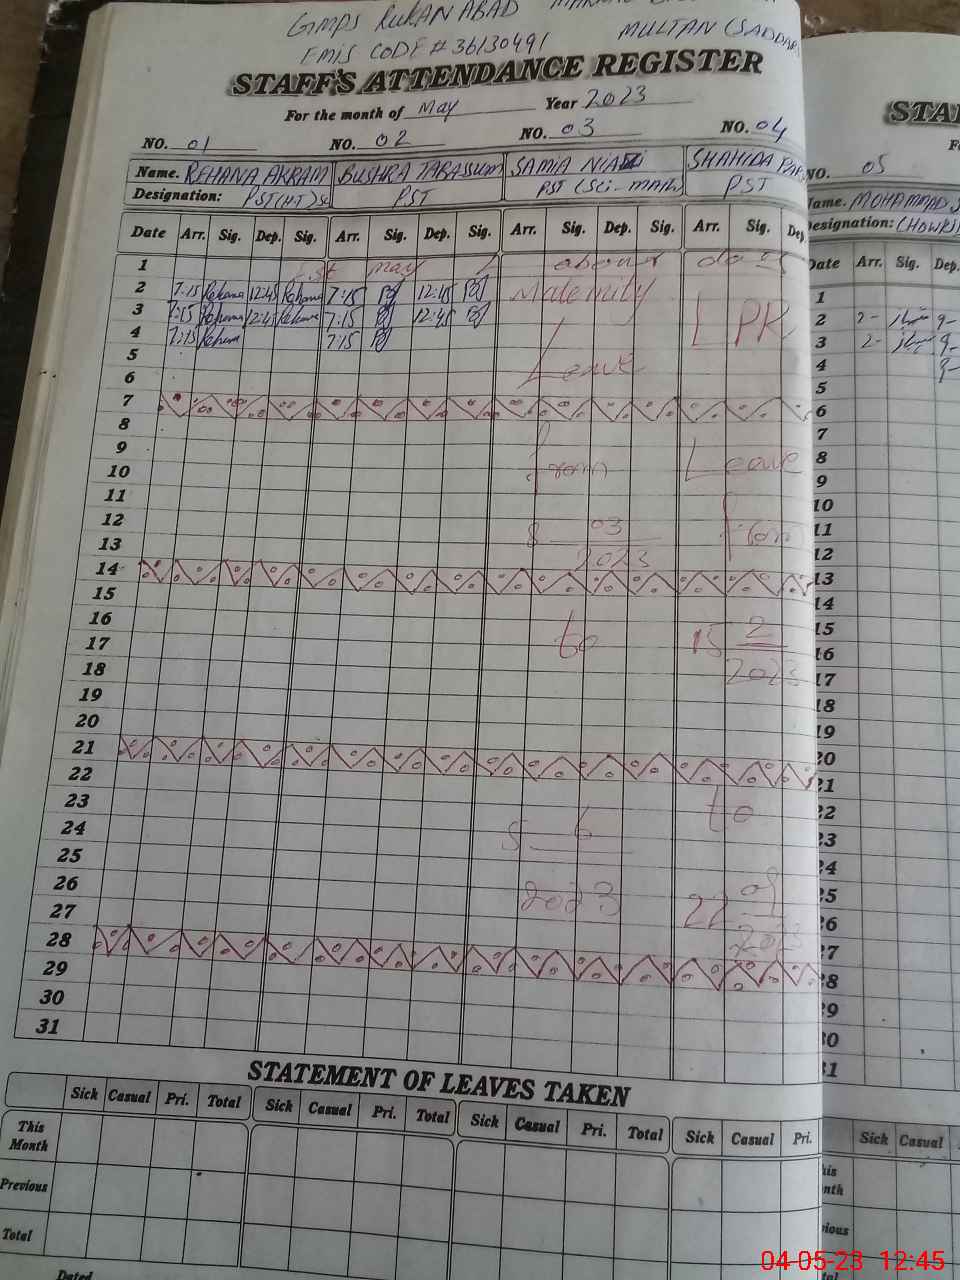 GMPS RUKANABAD
EMIS CODE # 36130491 MULTAN (SADDAR)
STAFF'S ATTENDANCE REGISTER
For the month of May Year 2023
NO. 01 NO. 02 NO. 03 NO. 04
Name. REHANA AKRAM BUSHRA TABASSUM SAMIA NIAZI SHAHIDA
Designation: PST(HT) PST PST (Sci-Math) PST
Date Arr. Sig. Dep. Sig. Arr. Sig. Dep. Sig. Arr. Sig. Dep. Sig. Arr. Sig. Dep.
1 1st may labour day
2 7:15 Rehana 12:45 Rehana 7:15 12:45 Maternity
3 7:15 Rehana 12:45 Rehana 7:15 12:45 LPR
4 7:15 Rehana 7:15
5
6 Leave
7
8
9 from Leave
10
11
12 8 03 from
13 2023
14
15
16 to 15 2
17 2023
18
19
20
21
22
23 to
24 5 6
25
26 2023 22
27 2023
28
29
30
31
STATEMENT OF LEAVES TAKEN
Sick Casual Pri. Total Sick Casual Pri. Total Sick Casual Pri. Total Sick Casual Pri.
This Month
Previous
Total
Dated
STA
NO. 05
Name. MOHAMMAD
Designation: CHOWKI
Date Arr. Sig. Dep.
1
2
3
4
5
6
7
8
9
10
11
12
13
14
15
16
17
18
19
20
21
22
23
24
25
26
27
28
29
30
31
Sick Casual
04-05-23 12:45